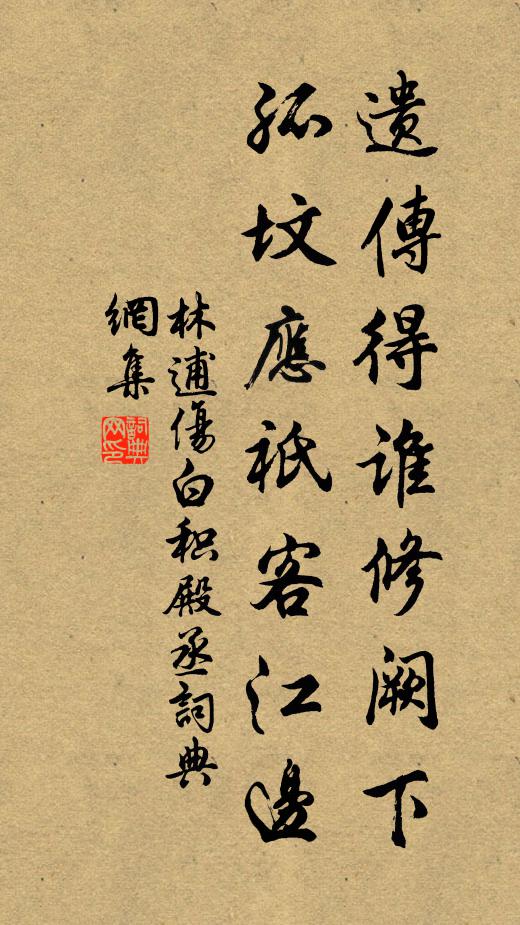 遺傳得誰修阙下
孤坟應祇客江邊
林逋傷白积殿丞詞典
網集
詞典
网印